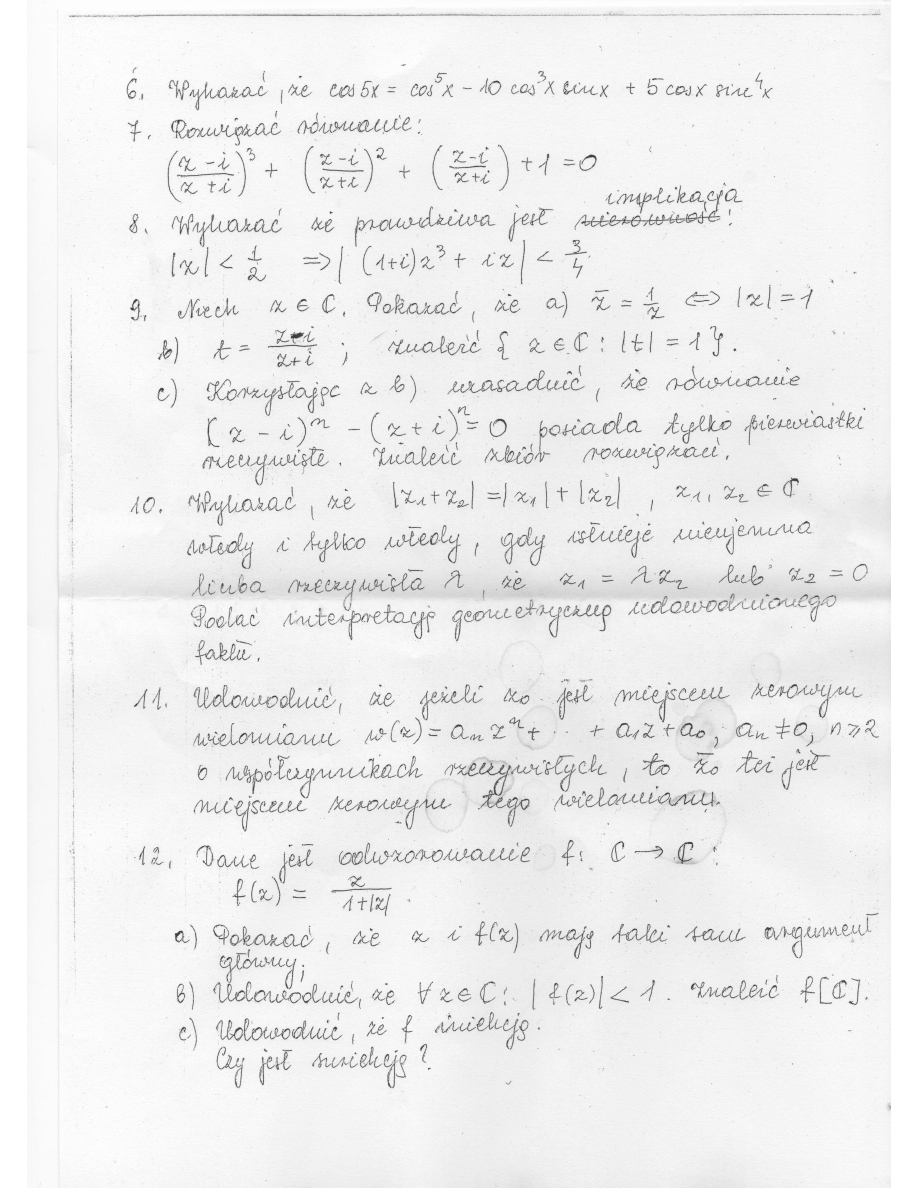 6. Wykazać, że cos5x = cos⁵x − 10 cos³x sinx + 5 cosx sin⁴x
7. Rozwiązać równanie:
(z−i / z+i)³ + (z−i / z+i)² + (z−i / z+i) + 1 = 0
8. Wykazać że prawdziwa jest ~~nierówność~~ implikacja!
|z| < 1/2 ⇒ |(1+i)z³ + iz| < 3/4.
9. Niech z ∈ ℂ. Pokazać, że a) z̄ = 1/z ⇔ |z| = 1
b) t = z−i / z+i ; znaleźć { z ∈ ℂ : |t| = 1 }.
c) Korzystając z b) uzasadnić, że równanie
(z − i)ⁿ − (z + i)ⁿ = 0 posiada tylko pierwiastki
rzeczywiste. Znaleźć zbiór rozwiązań.
10. Wykazać, że |z₁+z₂| = |z₁| + |z₂| , z₁, z₂ ∈ ℂ
wtedy i tylko wtedy, gdy istnieje nieujemna
liczba rzeczywista λ, że z₁ = λz₂ lub z₂ = 0
Podać interpretację geometryczną udowodnionego
faktu.
11. Udowodnić, że jeżeli z₀ jest miejscem zerowym
wielomianu w(z) = aₙzⁿ + ... + a₁z + a₀, aₙ ≠ 0, n ⩾ 2
o współczynnikach rzeczywistych, to z̄₀ też jest
miejscem zerowym tego wielomianu.
12. Dane jest odwzorowanie f: ℂ → ℂ :
f(z) = z / 1+|z| .
a) Pokazać, że z i f(z) mają taki sam argument
główny;
b) Udowodnić, że ∀ z ∈ ℂ : |f(z)| < 1. Znaleźć f[ℂ].
c) Udowodnić, że f iniekcją.
Czy jest suriekcją?